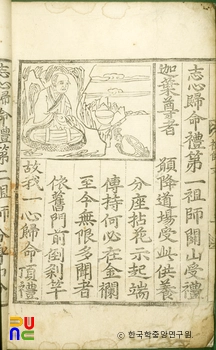 志心歸命禮第一祖師闍山受
迦葉尊者 願降道場受此供養
分座拈花示起端
傳持何必在金襴
至今無限多聞者
依舊門前倒刹竿
故我一心歸命頂禮
志心歸命禮第二祖師
PUNC
© 한국학중앙연구원